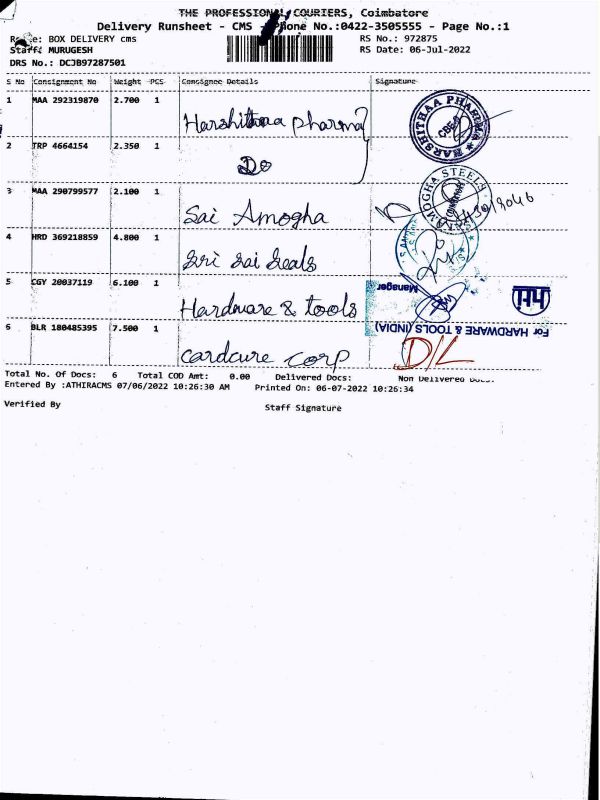 THE PROFESSIONAL COURIERS, Coimbatore
Delivery Runsheet - CMS - Phone No.:0422-3505555 - Page No.:1
BOX DELIVERY cms RS No.: 972875
Staff: MURUGESH RS Date: 06-Jul-2022
DRS No.: DCJB97287501
S No Consignment No Weight PCS Consignee Details Signature
1 MAA 292319870 2.700 1 Harshitaa pharma
HARSHITHAA PHARMA CBE
2 TRP 4664154 2.350 1 Do
3 MAA 290799577 2.100 1 Sai Amogha
AMOGHA STEELS
4 HRD 369218859 4.800 1 Sri Sai Seals
5 CGY 20037119 6.100 1 Hardware & tools
Manager hti
For HARDWARE & TOOLS (INDIA)
6 BLR 180485395 7.500 1 Cardcure Corp D/L
Total No. Of Docs: 6 Total COD Amt: 0.00 Delivered Docs: Non Delivered Docs:
Entered By :ATHIRACMS 07/06/2022 10:26:30 AM Printed On: 06-07-2022 10:26:34
Verified By Staff Signature